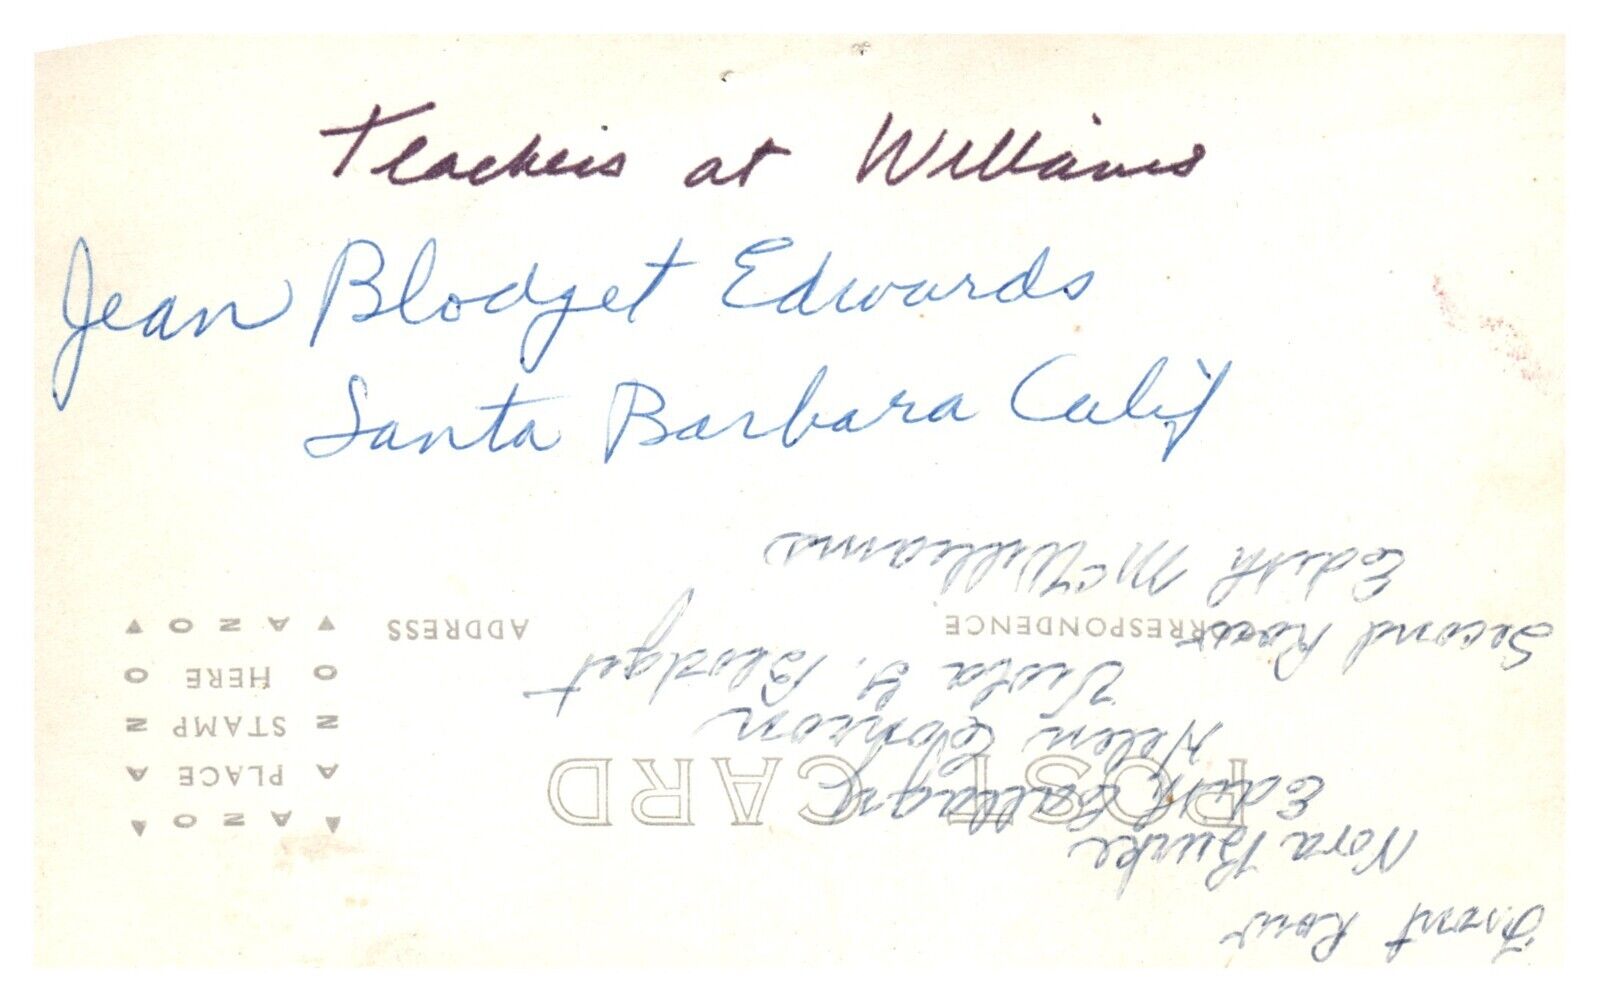 Teachers at Williams
Jean Blodget Edwards
Santa Barbara Calif
Front Row
Nora Burke
Edith
Helen
Viola G. Blodget
Second Row
Edith McWilliams
POST CARD
CORRESPONDENCE
ADDRESS
AZO
PLACE
STAMP
HERE
AZO